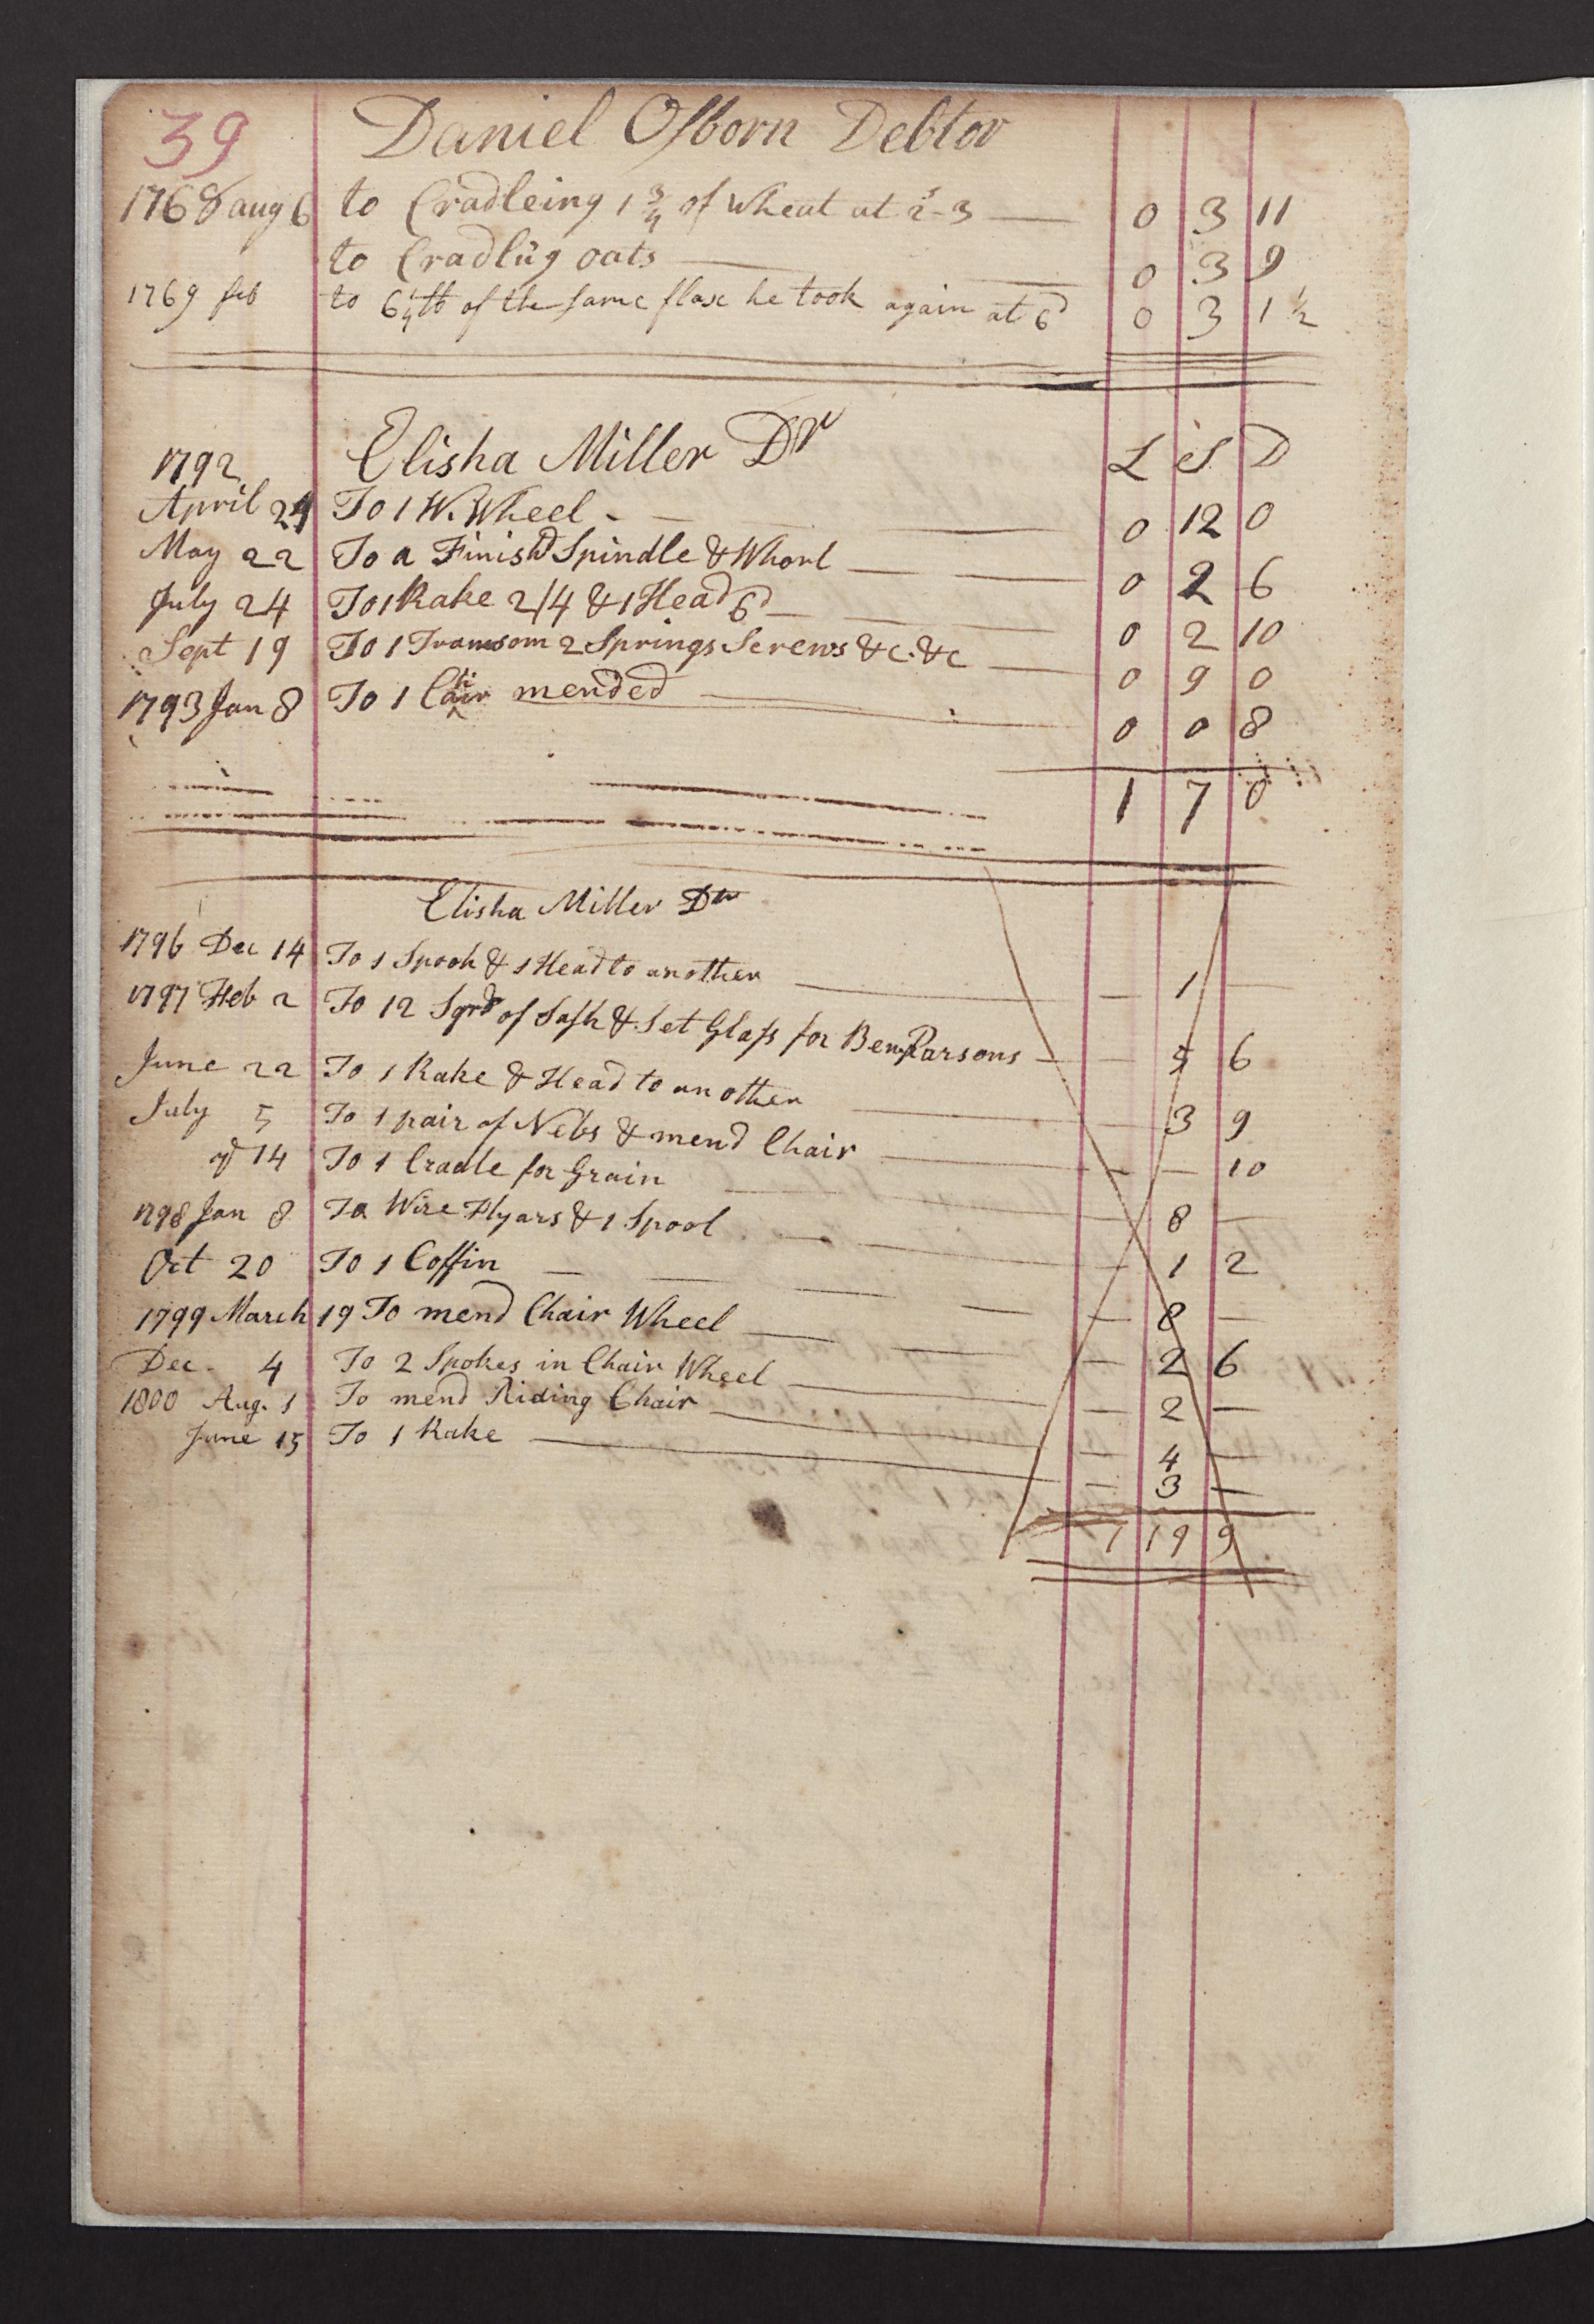 39 Daniel Osborn Debtor
1768 aug 6 to Cradleing 1 3/4 of wheat at 2s-3 — 0 3 11
to Cradlïg oats — 0 3 9
1769 feb to 6 1/4 lb of the same flax he took again at 6d 0 3 1 1/2
1792 Elisha Miller Dr L S D
April 24 To 1 W. Wheel - — 0 12 0
May 22 To a Finishd Spindle & Whorl — 0 2 6
July 24 To 1 Rake 2/4 & 1 Head 6d — 0 2 10
Sept 19 To 1 Transom 2 Springs Screws &c. &c — 0 9 0
1793 Jan 8 To 1 Chair mended — 0 0 8
1 7 0
Elisha Miller Dr
1796 Dec 14 To 1 Spooh & 1 Head to another — — 1 —
1797 Feb 2 To 12 Sqrs of Sash & Set Glass for Benj Parsons — — 5 6
June 22 To 1 Rake & Head to another — — 3 9
July 5 To 1 pair of Nebs & mend Chair — — — 10
14 To 1 Cradle for Grain — — 8 —
1798 Jan 8 To Wire Flyars & 1 Spool — — 1 2
Oct 20 To 1 Coffin — — 8 —
1799 March 19 To mend Chair Wheel — — 2 6
Dec. 4 To 2 Spokes in Chair Wheel — — 2 —
1800 Aug. 1 To mend Riding Chair — — 4 —
June 15 To 1 Rake — — 3 —
1 19 9